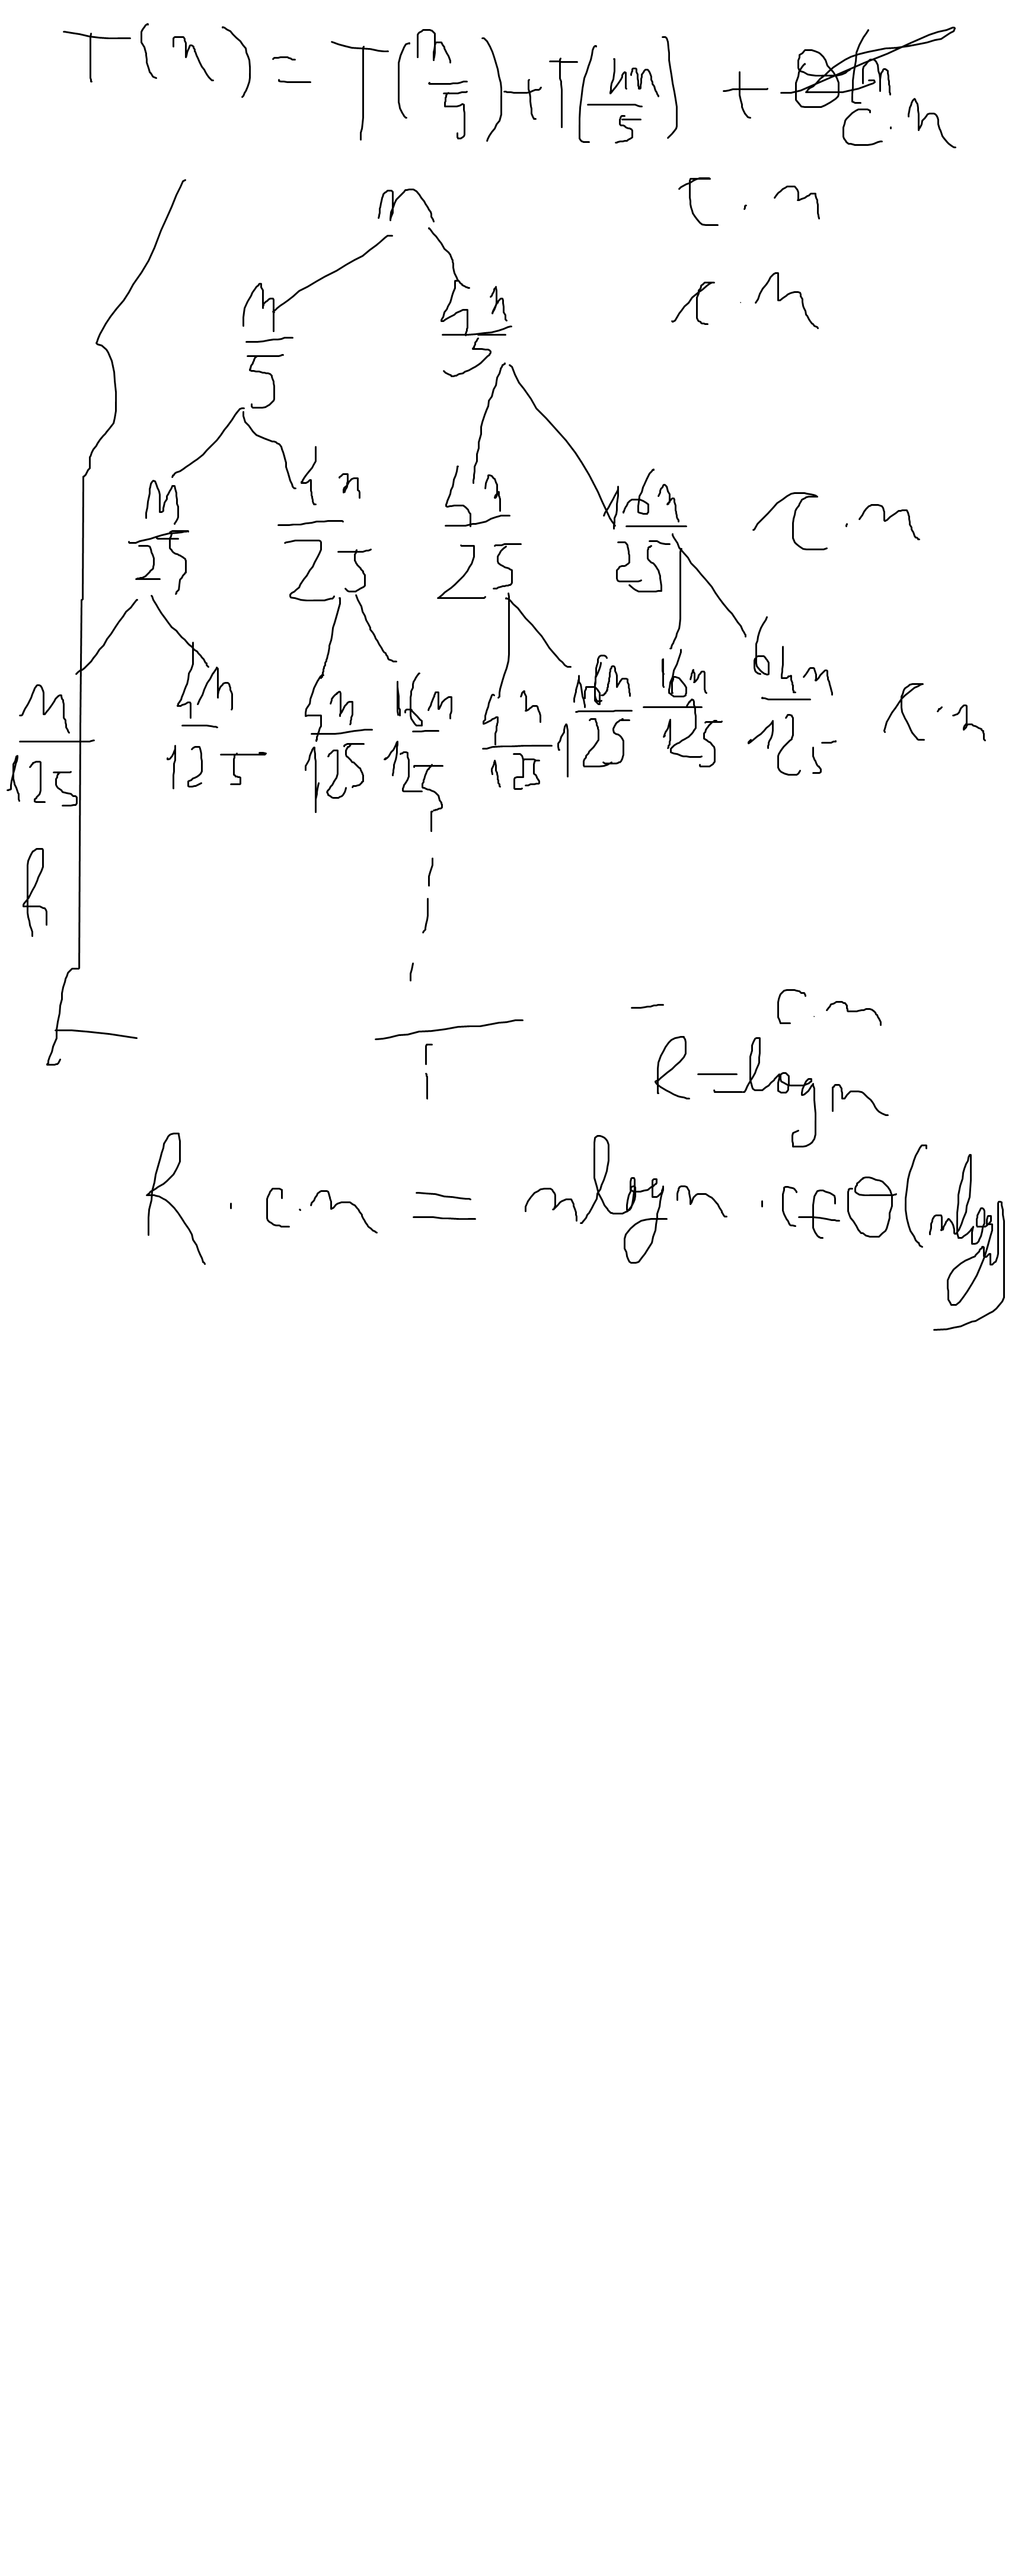 T(n) = T(n/5) + T(4n/5) + c·n
n c·n
n/5 4n/5 c·n
n/25 4n/25 4n/25 16n/25 c·n
n/125 4n/125 4n/125 16n/125 4n/125 16n/125 16n/125 64n/125 c·n
h
1 - c·n
h = log n
h · c·n = n log n · c = Θ(n log n)